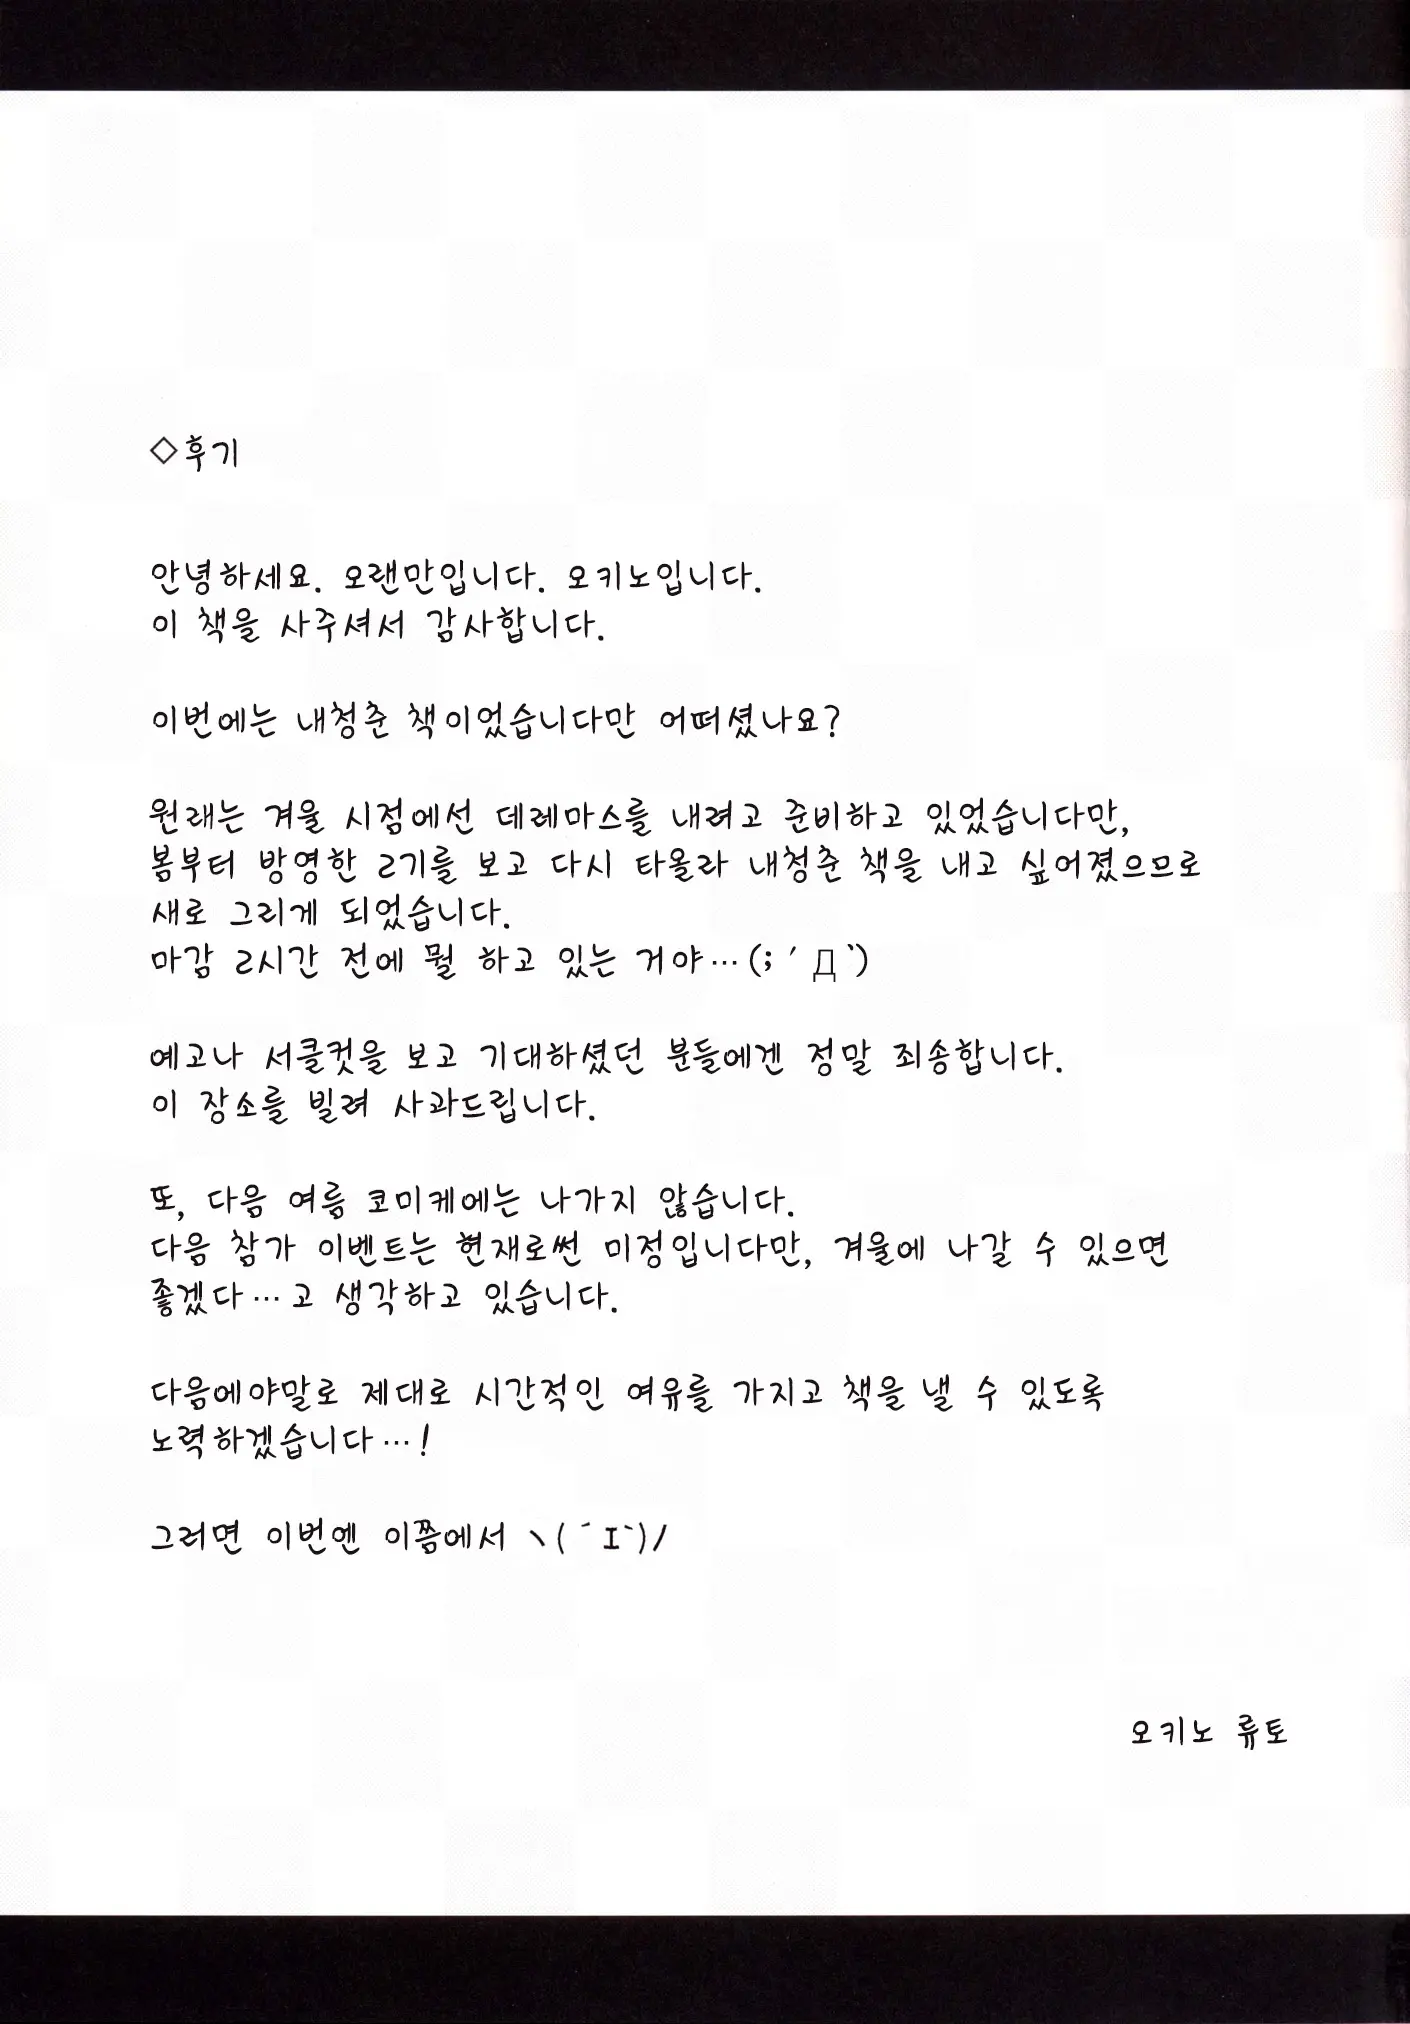 ◇후기
안녕하세요. 오랜만입니다. 오키노입니다.
이 책을 사주셔서 감사합니다.
이번에는 내청춘 책이었습니다만 어떠셨나요?
원래는 겨울 시점에선 데레마스를 내려고 준비하고 있었습니다만,
봄부터 방영한 2기를 보고 다시 타올라 내청춘 책을 내고 싶어졌으므로
새로 그리게 되었습니다.
마감 2시간 전에 뭘 하고 있는 거야…(;´Д`)
예고나 서클컷을 보고 기대하셨던 분들에겐 정말 죄송합니다.
이 장소를 빌려 사과드립니다.
또, 다음 여름 코미케에는 나가지 않습니다.
다음 참가 이벤트는 현재로썬 미정입니다만, 겨울에 나갈 수 있으면
좋겠다…고 생각하고 있습니다.
다음에야말로 제대로 시간적인 여유를 가지고 책을 낼 수 있도록
노력하겠습니다…!
그러면 이번엔 이쯤에서 ヽ(´エ`)/
오키노 류토